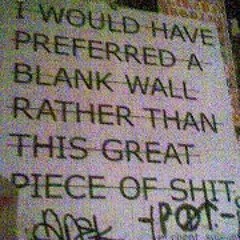 I WOULD HAVE
PREFERRED A
BLANK WALL
RATHER THAN
THIS GREAT
PIECE OF SHIT.
-POT-